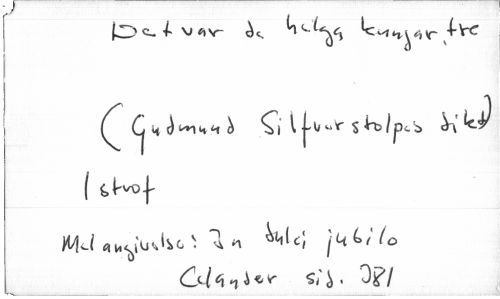 Det var de helga kungar tre
(Gudmund Silfverstolpes dikt)
1 strof
Mel angivelse: In dulci jubilo
Celander sid. 381